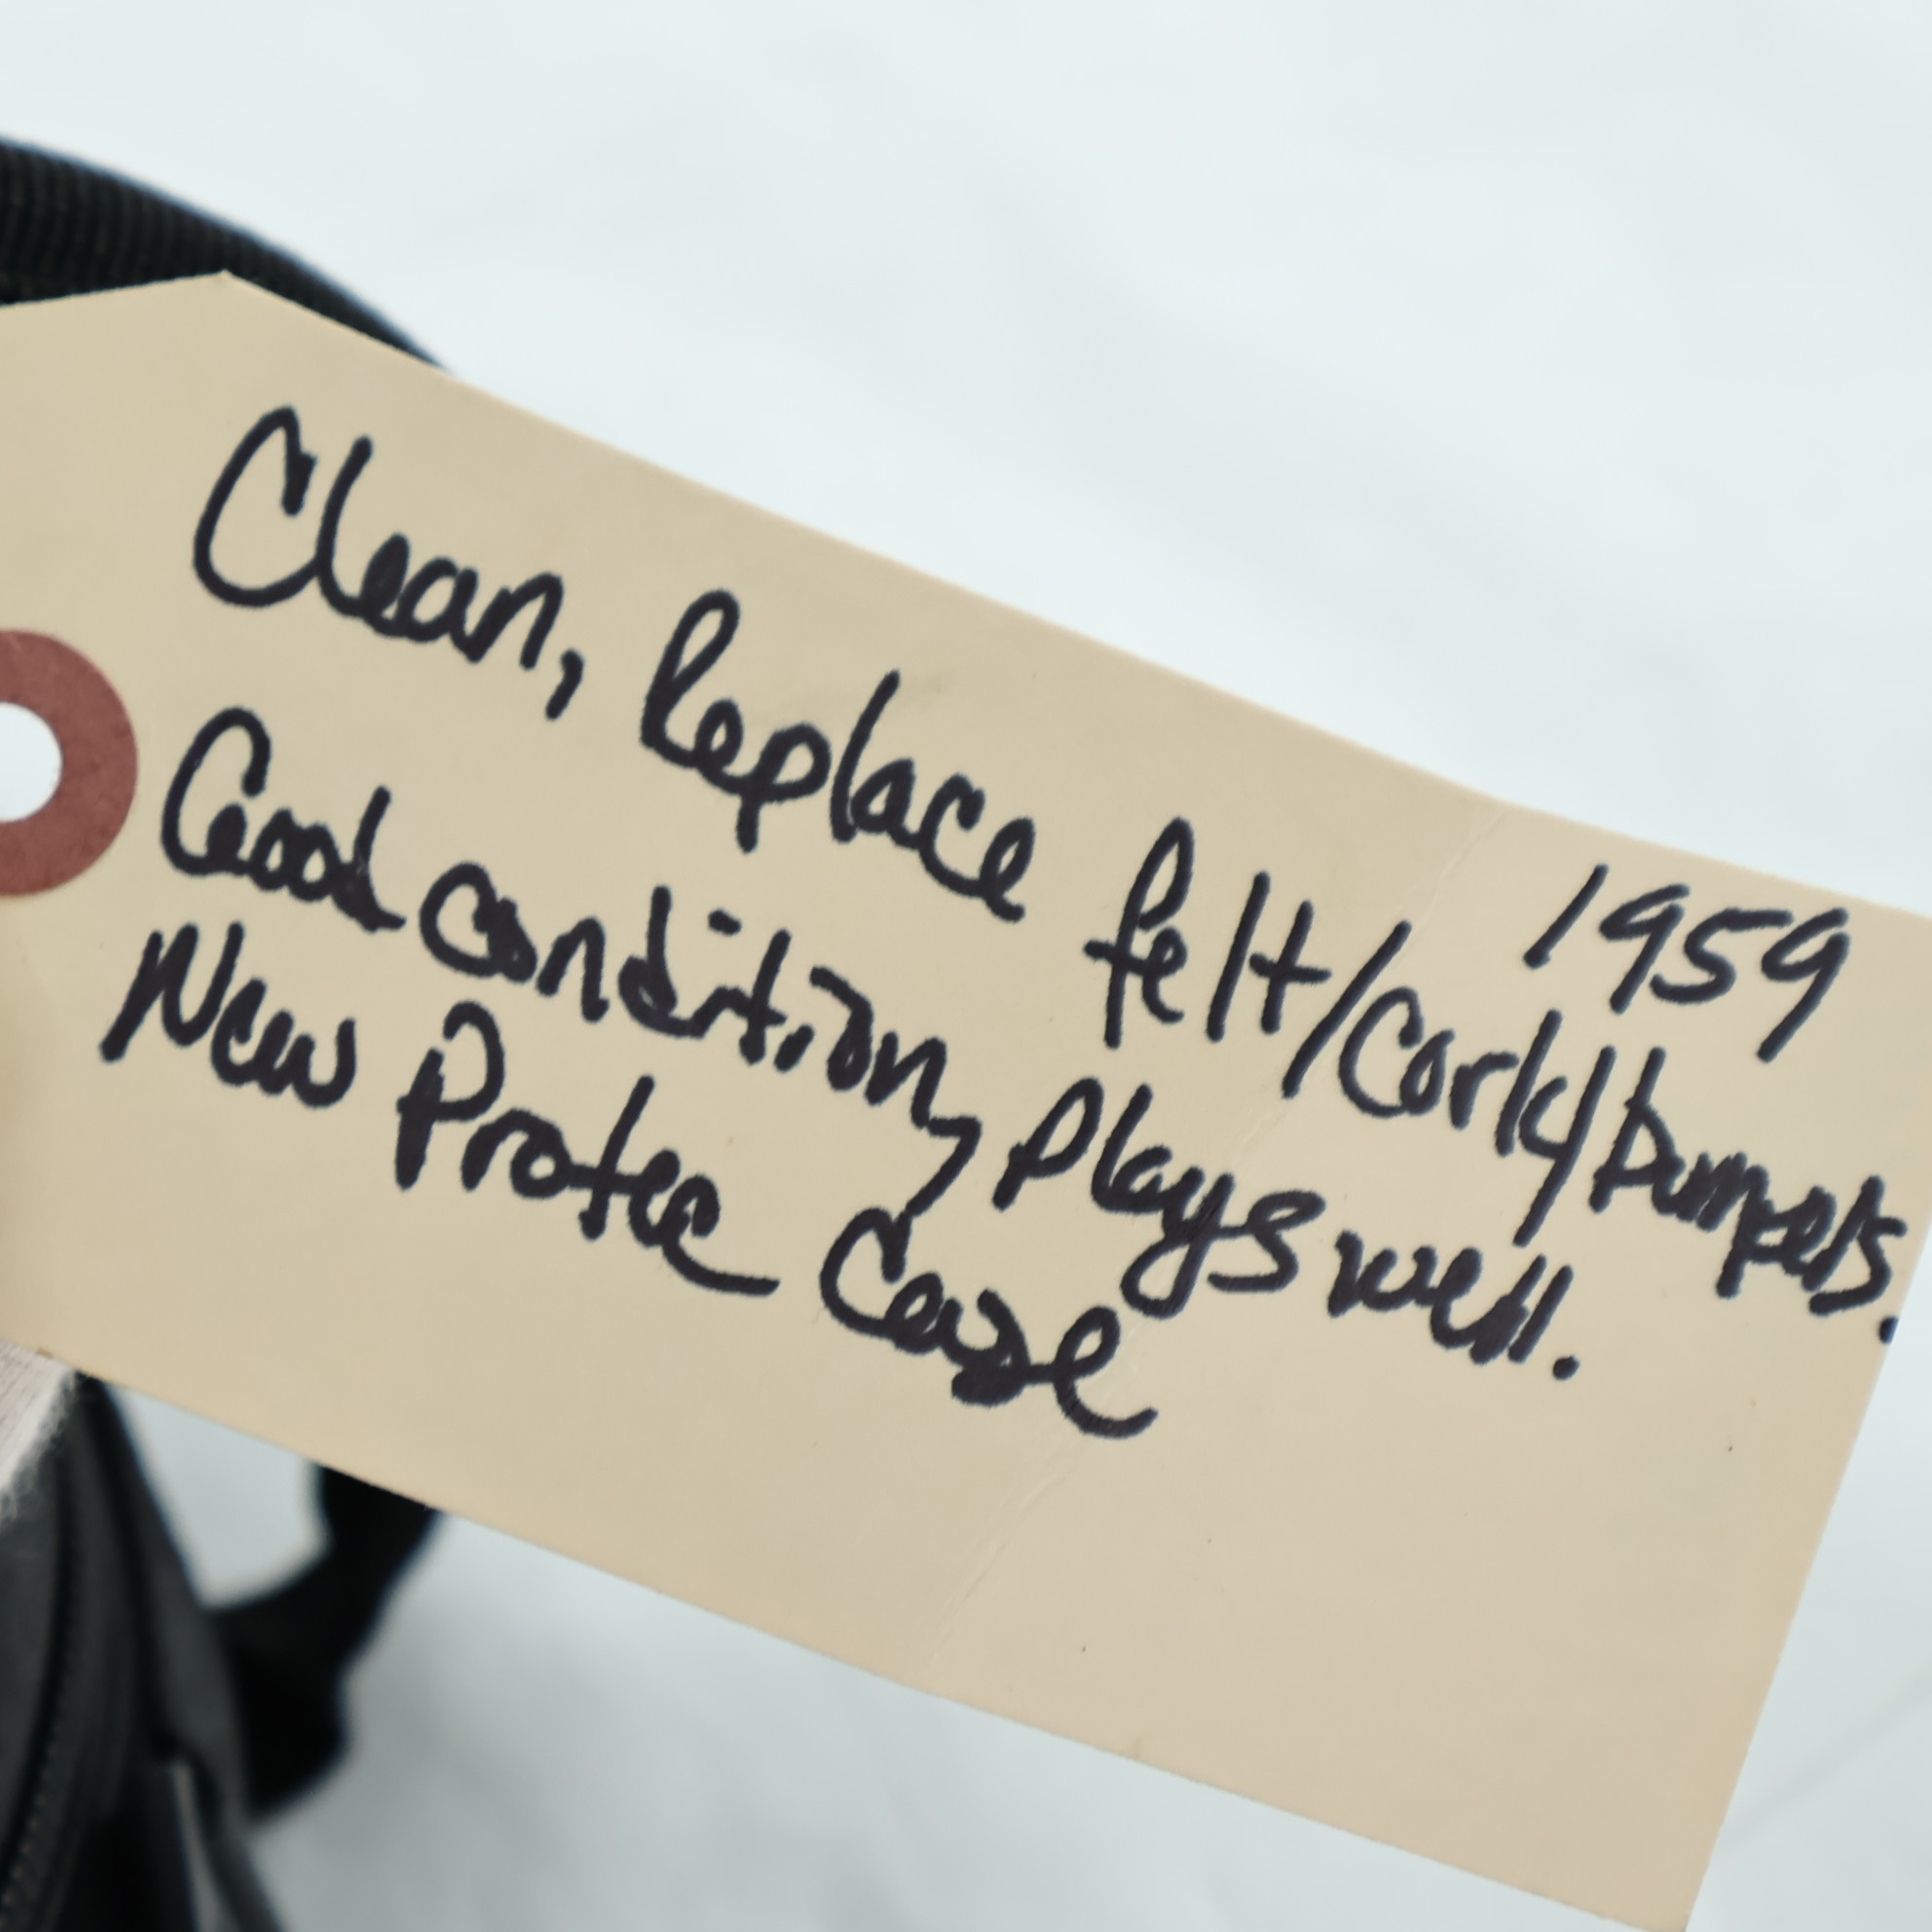 1959
Clean, Replace felt/Cork/bumpers.
Good condition, Plays well.
New Protec Case